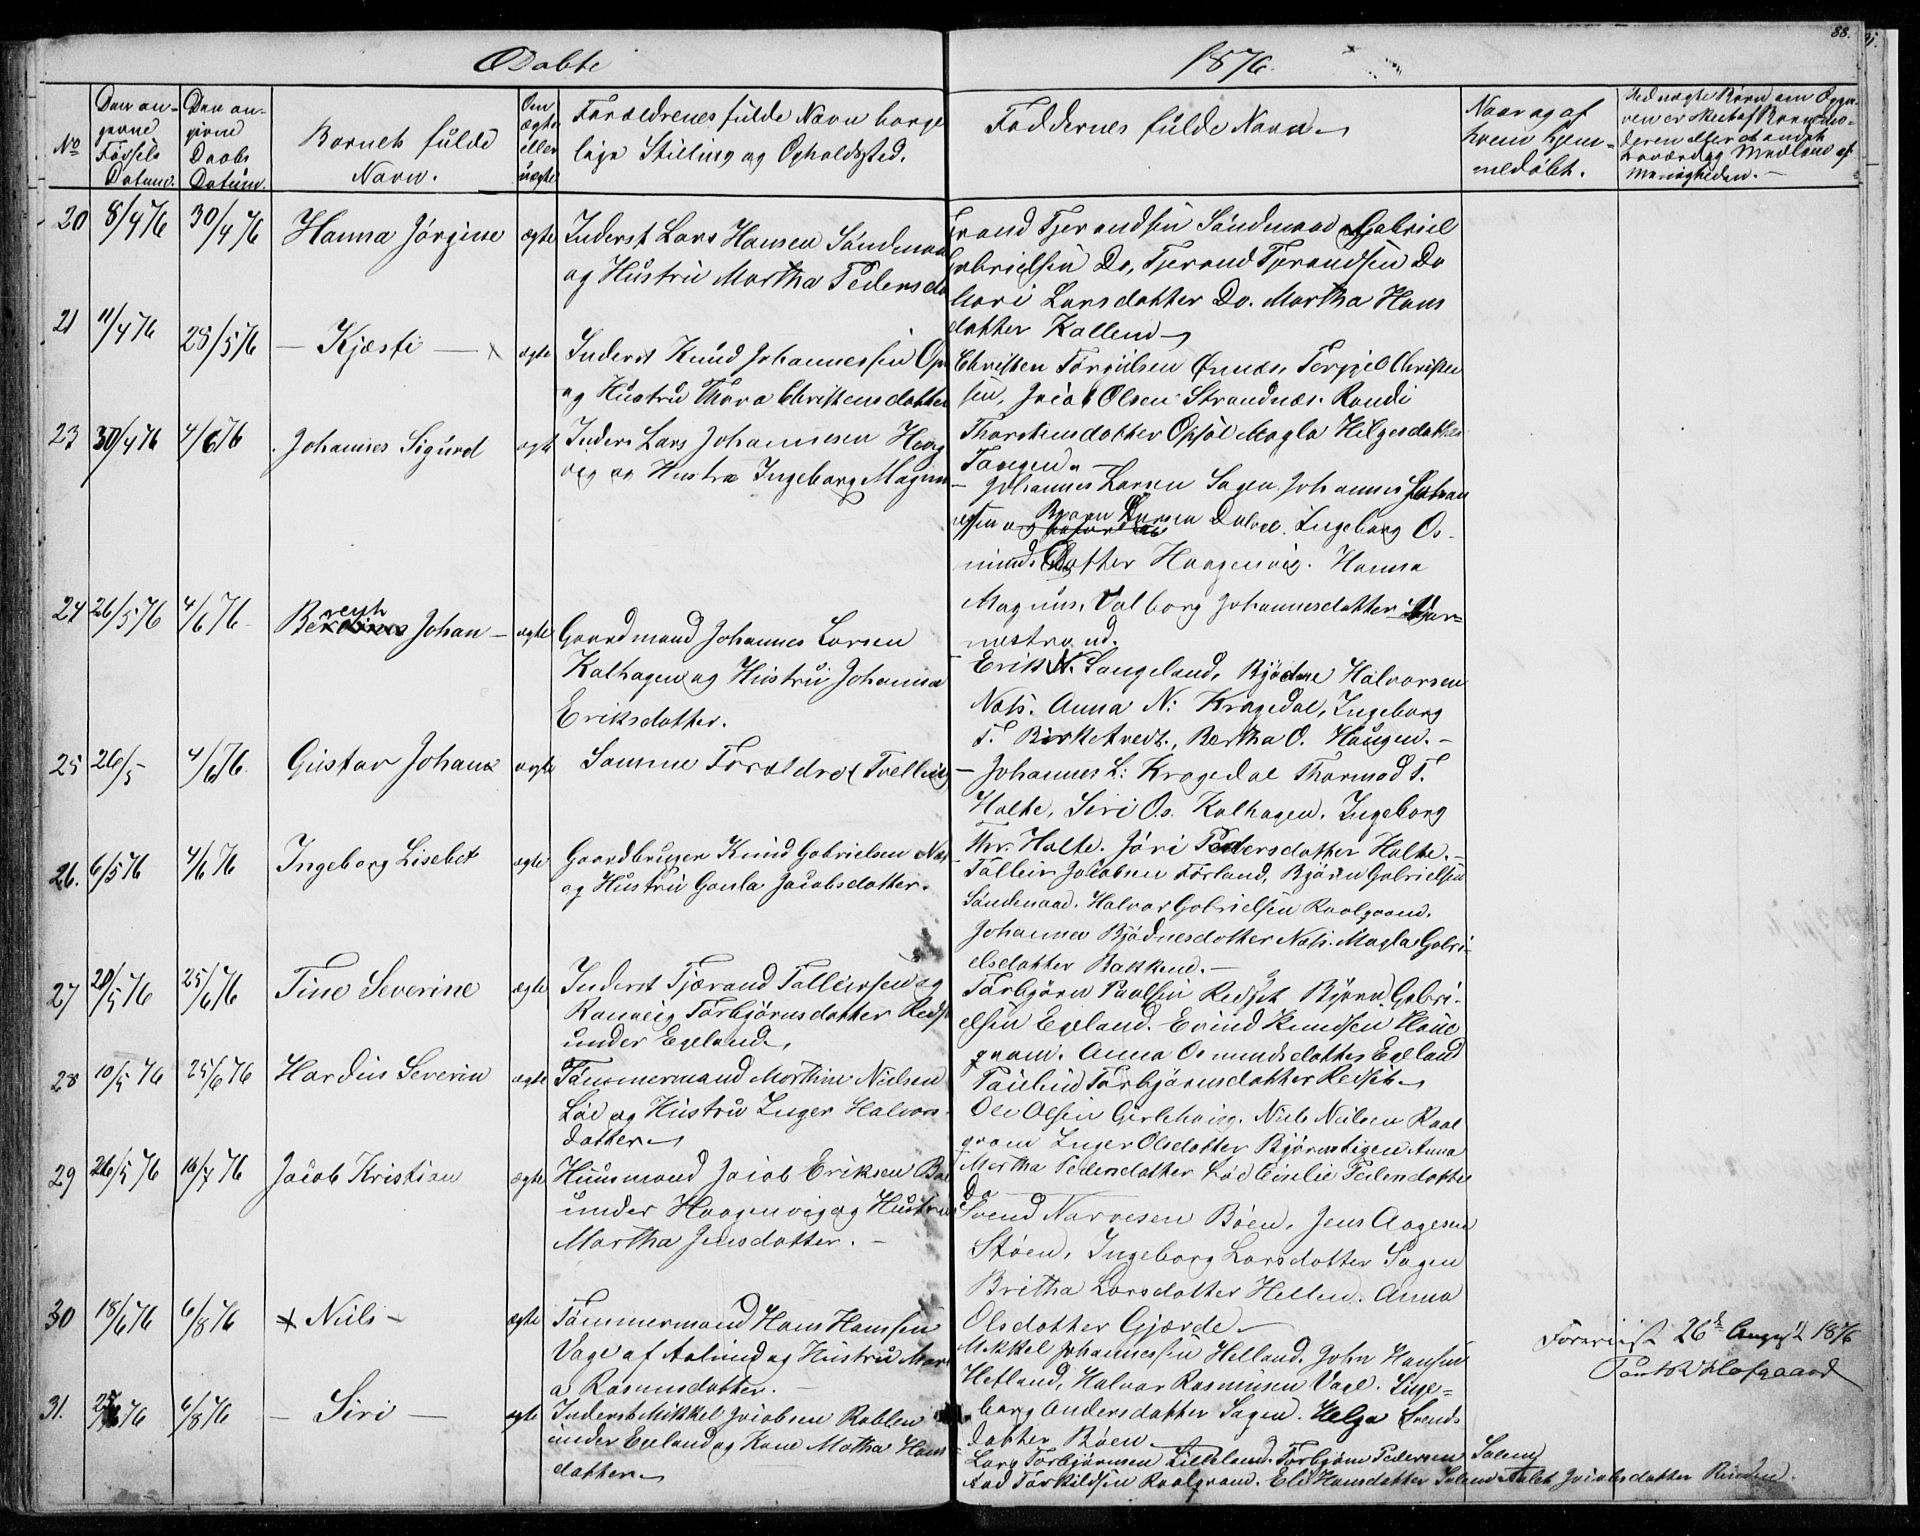 88.
Døbte
1876.
No
Den an-
givne
Fødsels
Datum.
Den an-
givne
Daabs
Datum.
Barnets fulde
Navn.
Om
ægte
eller
uægte
Forældrenes fulde Navn borger
lige Stilling og Opholdssted.
Faddernes fulde Navn
Naar og af
hvem hjem-
medøbt.
20 8/4 76 30/4 76 Hanna Jörgine ægte
Inderst Lars Hansen Söndenaa
og Hustru Martha Pedersda
Tjerandsen Söndenaa Gabriel
Gabrielsen Do, Tjerand Tjerandsen Do
Larsdatter Do. Martha Hans
datter Kallem
21 11/4 76 28/5 76 — Kjæsti — ægte
Inderst Knud Johannessen
og Hustru Thora Christensdatter
Christen Torgiilsen Torgjel Christen
sen, Jacob Olsen Strandnæs. Randi
Thorstensdatter Opsöl Magla Helgesdatter
Taagen.
23 30/4 76 4/6 76 Johannes Sigurd ægte
Inders Lars Johannesen Haag
vig og Hustru Ingeborg Magnu
— Johannes Larsen Sagen, Johannes Johan
essen og Bjørn Larsen Ingeborg Os-
munds Datter Haagenvig. Hanna
Magnus, Valborg Johannesdatter
nestrand.
24 26/5 76 4/6 76 Berenth Johan — ægte
Gaardmand Johannes Larsen
Kalhagen og Hustru Johanna
Eriksdatter.
Erik N. Langeland, Bjödne Halvorsen
Næs. Anna N. Kragedal, Ingeborg
T. Birketvedt, Bertha O. Haugen. —
25 26/5 4/6 76. Gustav Johan ægte
Samme Forældre (Tvelling)
— Johannes L: Kragedal Thormod T.
Holte, Siri Os. Kalhagen, Ingeborg
Thr. Holte. Jöri Pedersdatter Holte. —
26. 6/5 76 4/6 76 Ingeborg Lisebet ægte
Gaardbruger Knud Gabrielsen Næs
og Hustru Gunla Jacobsdatter.
Tallein Jacobsen Förland, Bjørn Gabrielsen
Söndenaa. Halvor Gabrielsen Raalgvam.
Johanna Bjödnesdatter Næs. Magla Gabri-
elsdatter Bakkend. —
27 20/5 76 25/6 76 Tine Severine ægte
Inderst Tjærand Talleivsen og
Ranveig Torbjörnsdatter Redse
under Egeland,
Torbjörn Paalsen Redset Bjørn Gabri-
elsen Egeland. Erind Knudsen Houe
gvam. Anna Osmundsdatter Egeland
Paulin Torbjørnsdatter Redset
28 10/5 76 25/6 76 Hardus Severin ægte
Tømmermand Morthin Nielsen
Löd og Hustru Inger Halvors-
datter
Ole Olsen Niels Nielsen Raal
gvam Inger Olsdatter Bjørnstigen Anna
Martha Pedersdatter Löd Cicilie Pedersdatter
Do
29 26/5 76 16/7 76 Jacob Kristian ægte
Huusmand Jacob Eriksen
under Haagenvig og Hustru
Martha Jensdatter. —
Svend Narvesen Böen, Jens Aagesen
Støen, Ingeborg Larsdatter Sagen
Britha Larsdatter Hellen. Anna
Olsdatter Gjærde
30 18/6 76 6/8 76 + Niels — ægte
Tömmermand Hans Hansen
Vage af Aalund og Hustru Mar
a Rasmusdatter. —
Mikkel Johannessen Helland. John Hansen
Hetland, Halvor Rasmusen Vage. Inge-
borg Andersdatter Sagen. Helga Svends
datter Böen
Foreviist 26de August 1876
31. 6/8 76 — Siri — ægte
Inderst Mikkel Jacobsen Roblen
under Egeland og Kone Martha Hans
datter
Lars Torbjörnsen Lilleland, Torbjørn Pedersen Salem,
Aad Torkildsen Raalgvam. Eli Hansdatter Salem Aalet Jacobsdatter